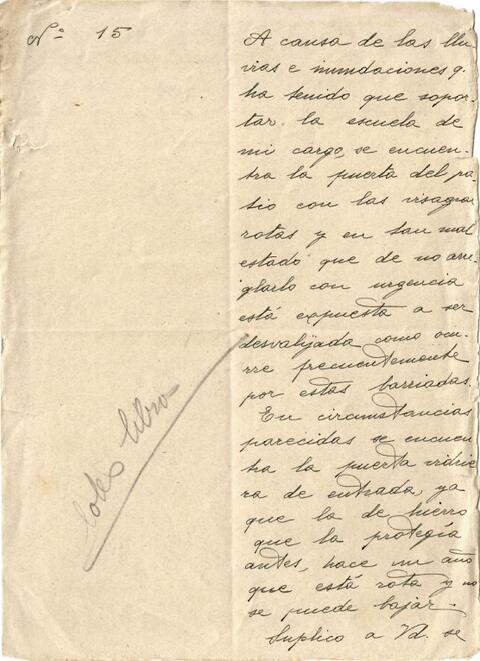 Nº 15
A causa de las llu
vias e inundaciones q.
ha tenido que sopor-
tar la escuela de
mi cargo, se encuen-
tra la puerta del pa-
tio con las visagras
rotas y en tan mal
estado que de no arre-
glarlo con urgencia
está expuesta a ser
desvalijada como ocu-
rre frecuentemente
por estas barriadas.
En circunstancias
parecidas se encuen
tra la puerta vidrie
ra de entrada, ya
que la de hierro
que la protegía
antes, hace un año
que está rota y no
se puede bajar.
Suplico a Vd. se
libro